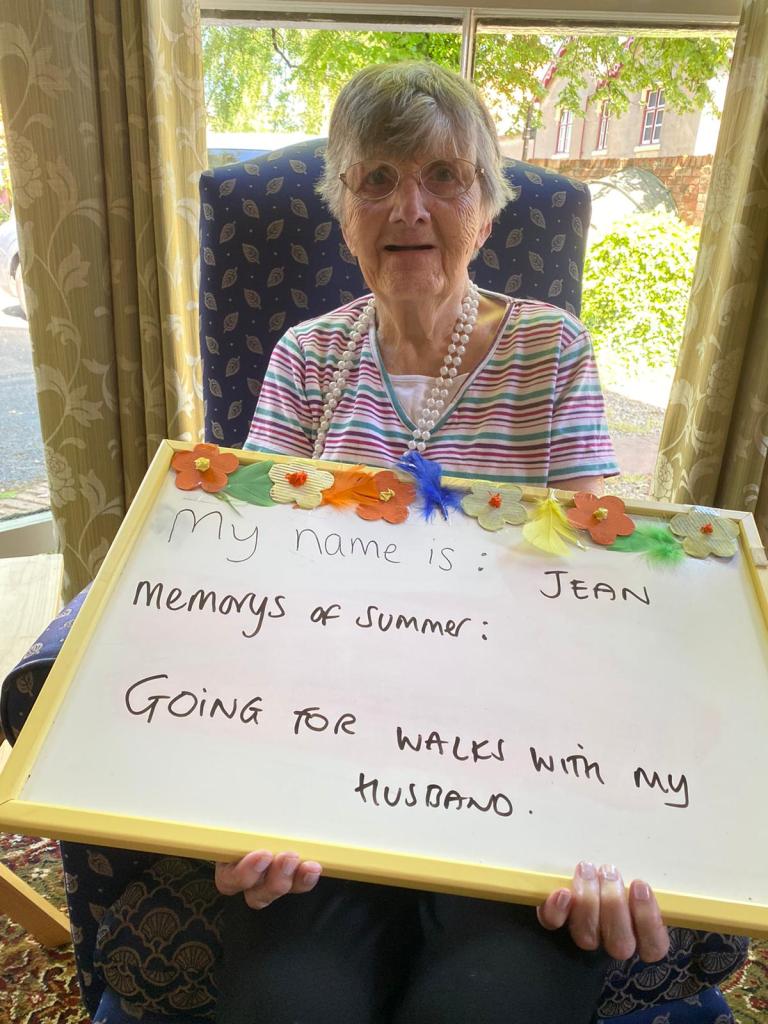 My name is: JEAN
Memorys of summer:
GOING FOR WALKS WITH MY
HUSBAND.